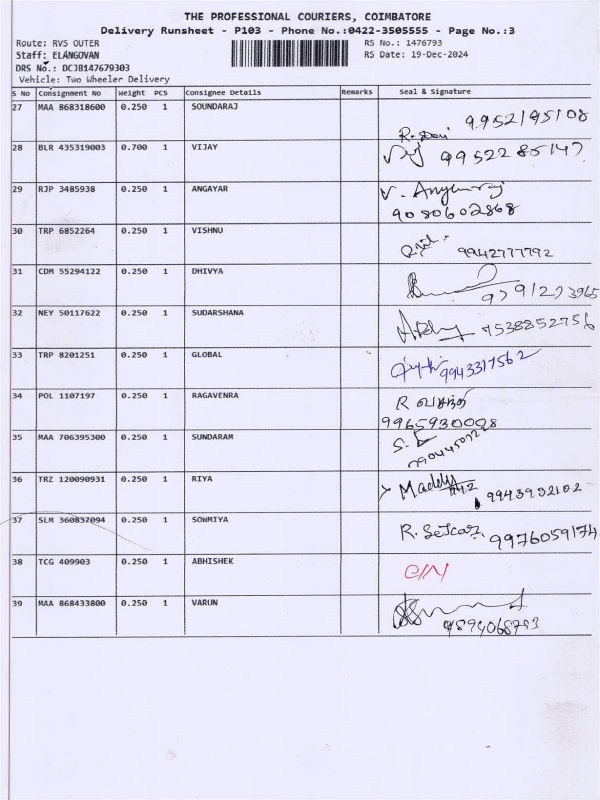 THE PROFESSIONAL COURIERS, COIMBATORE
Delivery Runsheet - P103 - Phone No.:0422-3505555 - Page No.:3
Route: RVS OUTER
RS No.: 1476793
Staff: ELANGOVAN
RS Date: 19-Dec-2024
DRS No.: DCJB147679303
Vehicle: Two Wheeler Delivery
S No Consignment No Weight PCS Consignee Details Remarks Seal & Signature
27 MAA 868318600 0.250 1 SOUNDARAJ 9952195108
28 BLR 435319003 0.700 1 VIJAY 9952285147
29 RJP 3485938 0.250 1 ANGAYAR
9080602868
30 TRP 6852264 0.250 1 VISHNU 9942777792
31 CDM 55294122 0.250 1 DHIVYA
32 NEY 50117622 0.250 1 SUDARSHANA
33 TRP 8201251 0.250 1 GLOBAL 9943317562
34 POL 1107197 0.250 1 RAGAVENRA R வசந்தி
9965930008
35 MAA 706395300 0.250 1 SUNDARAM
36 TRZ 120090931 0.250 1 RIYA
37 SLM 360837094 0.250 1 SOWMIYA 9976059174
38 TCG 409903 0.250 1 ABHISHEK
39 MAA 868433800 0.250 1 VARUN